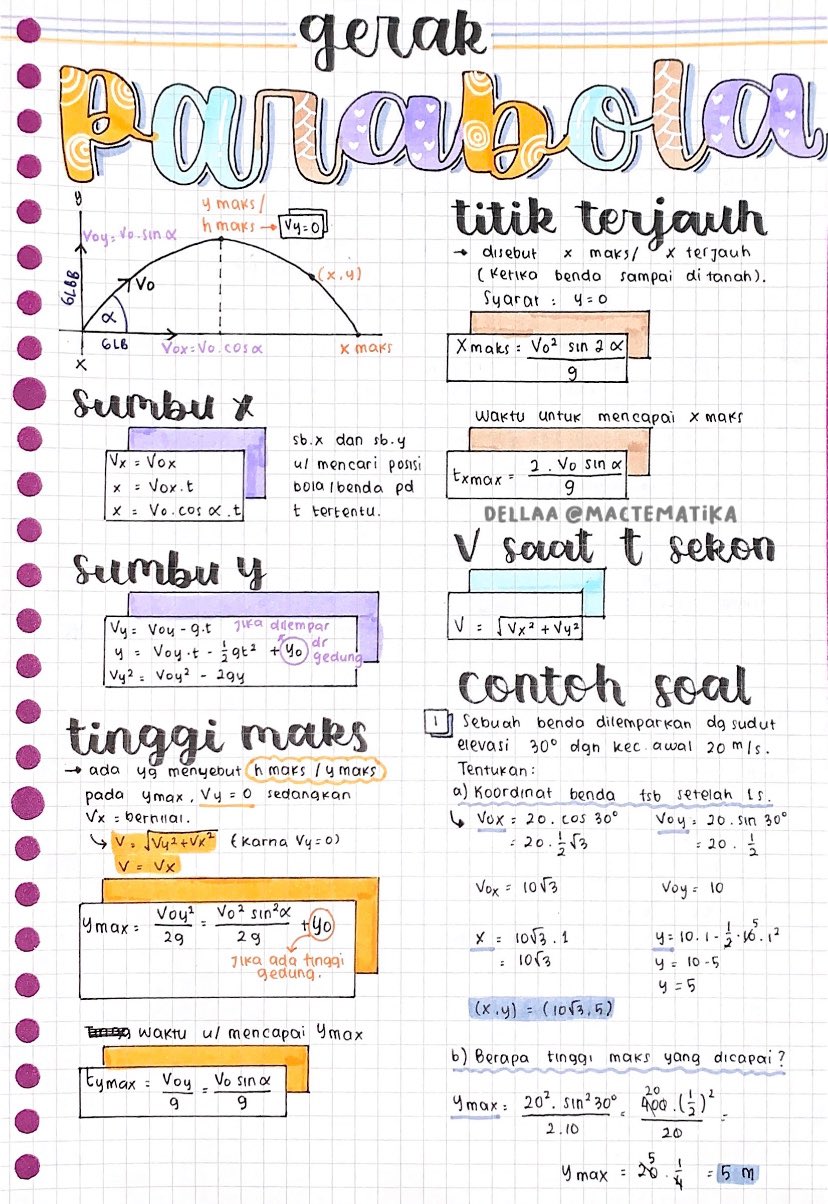 gerak
parabola
y
y maks /
h maks → Vy=0
Voy = Vo.sin α
GLBB
Vo
(x,y)
α
GLB
Vox=Vo.cos α
x maks
x
sumbu x
Vx = Vox
x = Vox.t
x = Vo.cos α.t
sb.x dan sb.y
u/ mencari posisi
bola/benda pd
t tertentu.
sumbu y
Vy = Voy - g.t
y = Voy.t - 1/2 gt² + yo
Vy² = Voy² - 2gy
jika dilempar
dr
gedung
tinggi maks
→ ada yg menyebut h maks / y maks
pada ymax, Vy = 0 sedangkan
Vx = bernilai.
↳ V = √Vy²+Vx² (karna Vy=0)
V = Vx
ymax = Voy²/2g = Vo² sin²α/2g + yo
jika ada tinggi
gedung.
waktu u/ mencapai ymax
tymax = Voy/g = Vo sin α/g
titik terjauh
→ disebut x maks/ x terjauh
(ketika benda sampai di tanah).
Syarat : y=0
Xmaks = Vo² sin 2α/g
waktu untuk mencapai x maks
txmax = 2.Vo sin α/g
DELLAA @MACTEMATIKA
V saat t sekon
V = √Vx²+Vy²
contoh soal
1 Sebuah benda dilemparkan dg sudut
elevasi 30° dgn kec.awal 20 m/s.
Tentukan:
a) Koordinat benda tsb setelah 1s.
↳ Vox = 20.cos 30°
= 20.1/2√3
Vox = 10√3
x = 10√3.1
= 10√3
Voy = 20.sin 30°
= 20.1/2
Voy = 10
y = 10.1 - 1/2.10.1²
5
y = 10-5
y = 5
(x,y) = (10√3,5)
b) Berapa tinggi maks yang dicapai?
ymax = 20².sin²30°/2.10 = 400.(1/2)²/20 =
20
ymax = 20.1/4 = 5 m
5